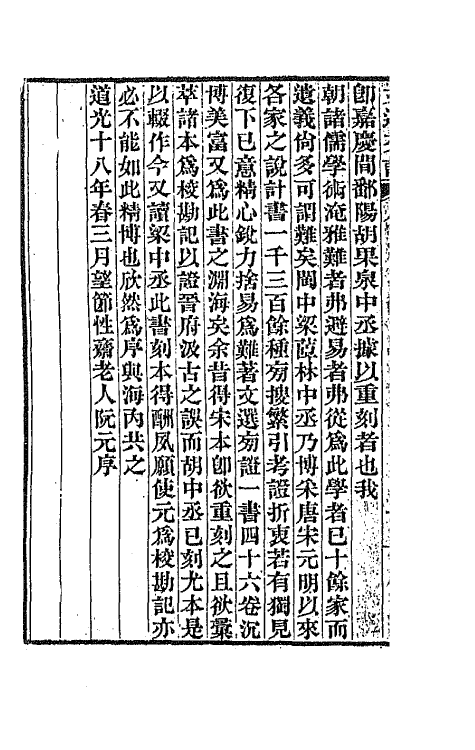 卽嘉慶間鄱陽胡果泉中丞據以重刻者也我
朝諸儒學術淹雅難者弗避易者弗從爲此學者已十餘家而
遺義尙多可謂難矣閩中梁茝林中丞乃博采唐宋元明以來
各家之說計書一千三百餘種旁搜繁引考證折衷若有獨見
復下已意精心銳力捨易爲難著文選旁證一書四十六卷沉
博美富又爲此書之淵海矣余昔得宋本卽欲重刻之且欲彙
萃諸本爲校勘記以證晉府汲古之誤而胡中丞已刻尤本是
以輟作今又讀梁中丞此書刻本得酬夙願使元爲校勘記亦
必不能如此精博也欣然爲序與海內共之
道光十八年春三月望節性齋老人阮元序